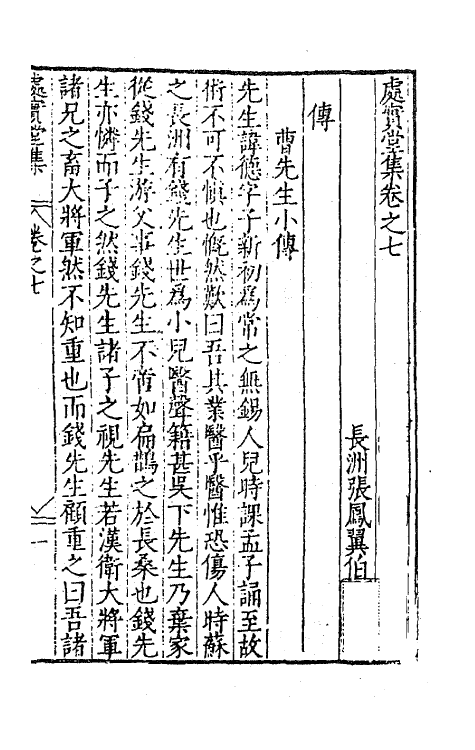 處實堂集卷之七
長洲張鳳翼伯
傳
曹先生小傳
先生諱德字子新初爲常之無錫人兒時課孟子誦至故
術不可不慎也慨然歎曰吾其業醫乎醫惟恐傷人時蘇
之長洲有錢先生世爲小兒醫聲籍甚吳下先生乃棄家
從錢先生游父事錢先生不啻如扁鵲之於長桑也錢先
生亦憐而子之然錢先生諸子之視先生若漢衛大將軍
諸兄之畜大將軍然不知重也而錢先生顧重之曰吾諸
處實堂集
卷之七
一